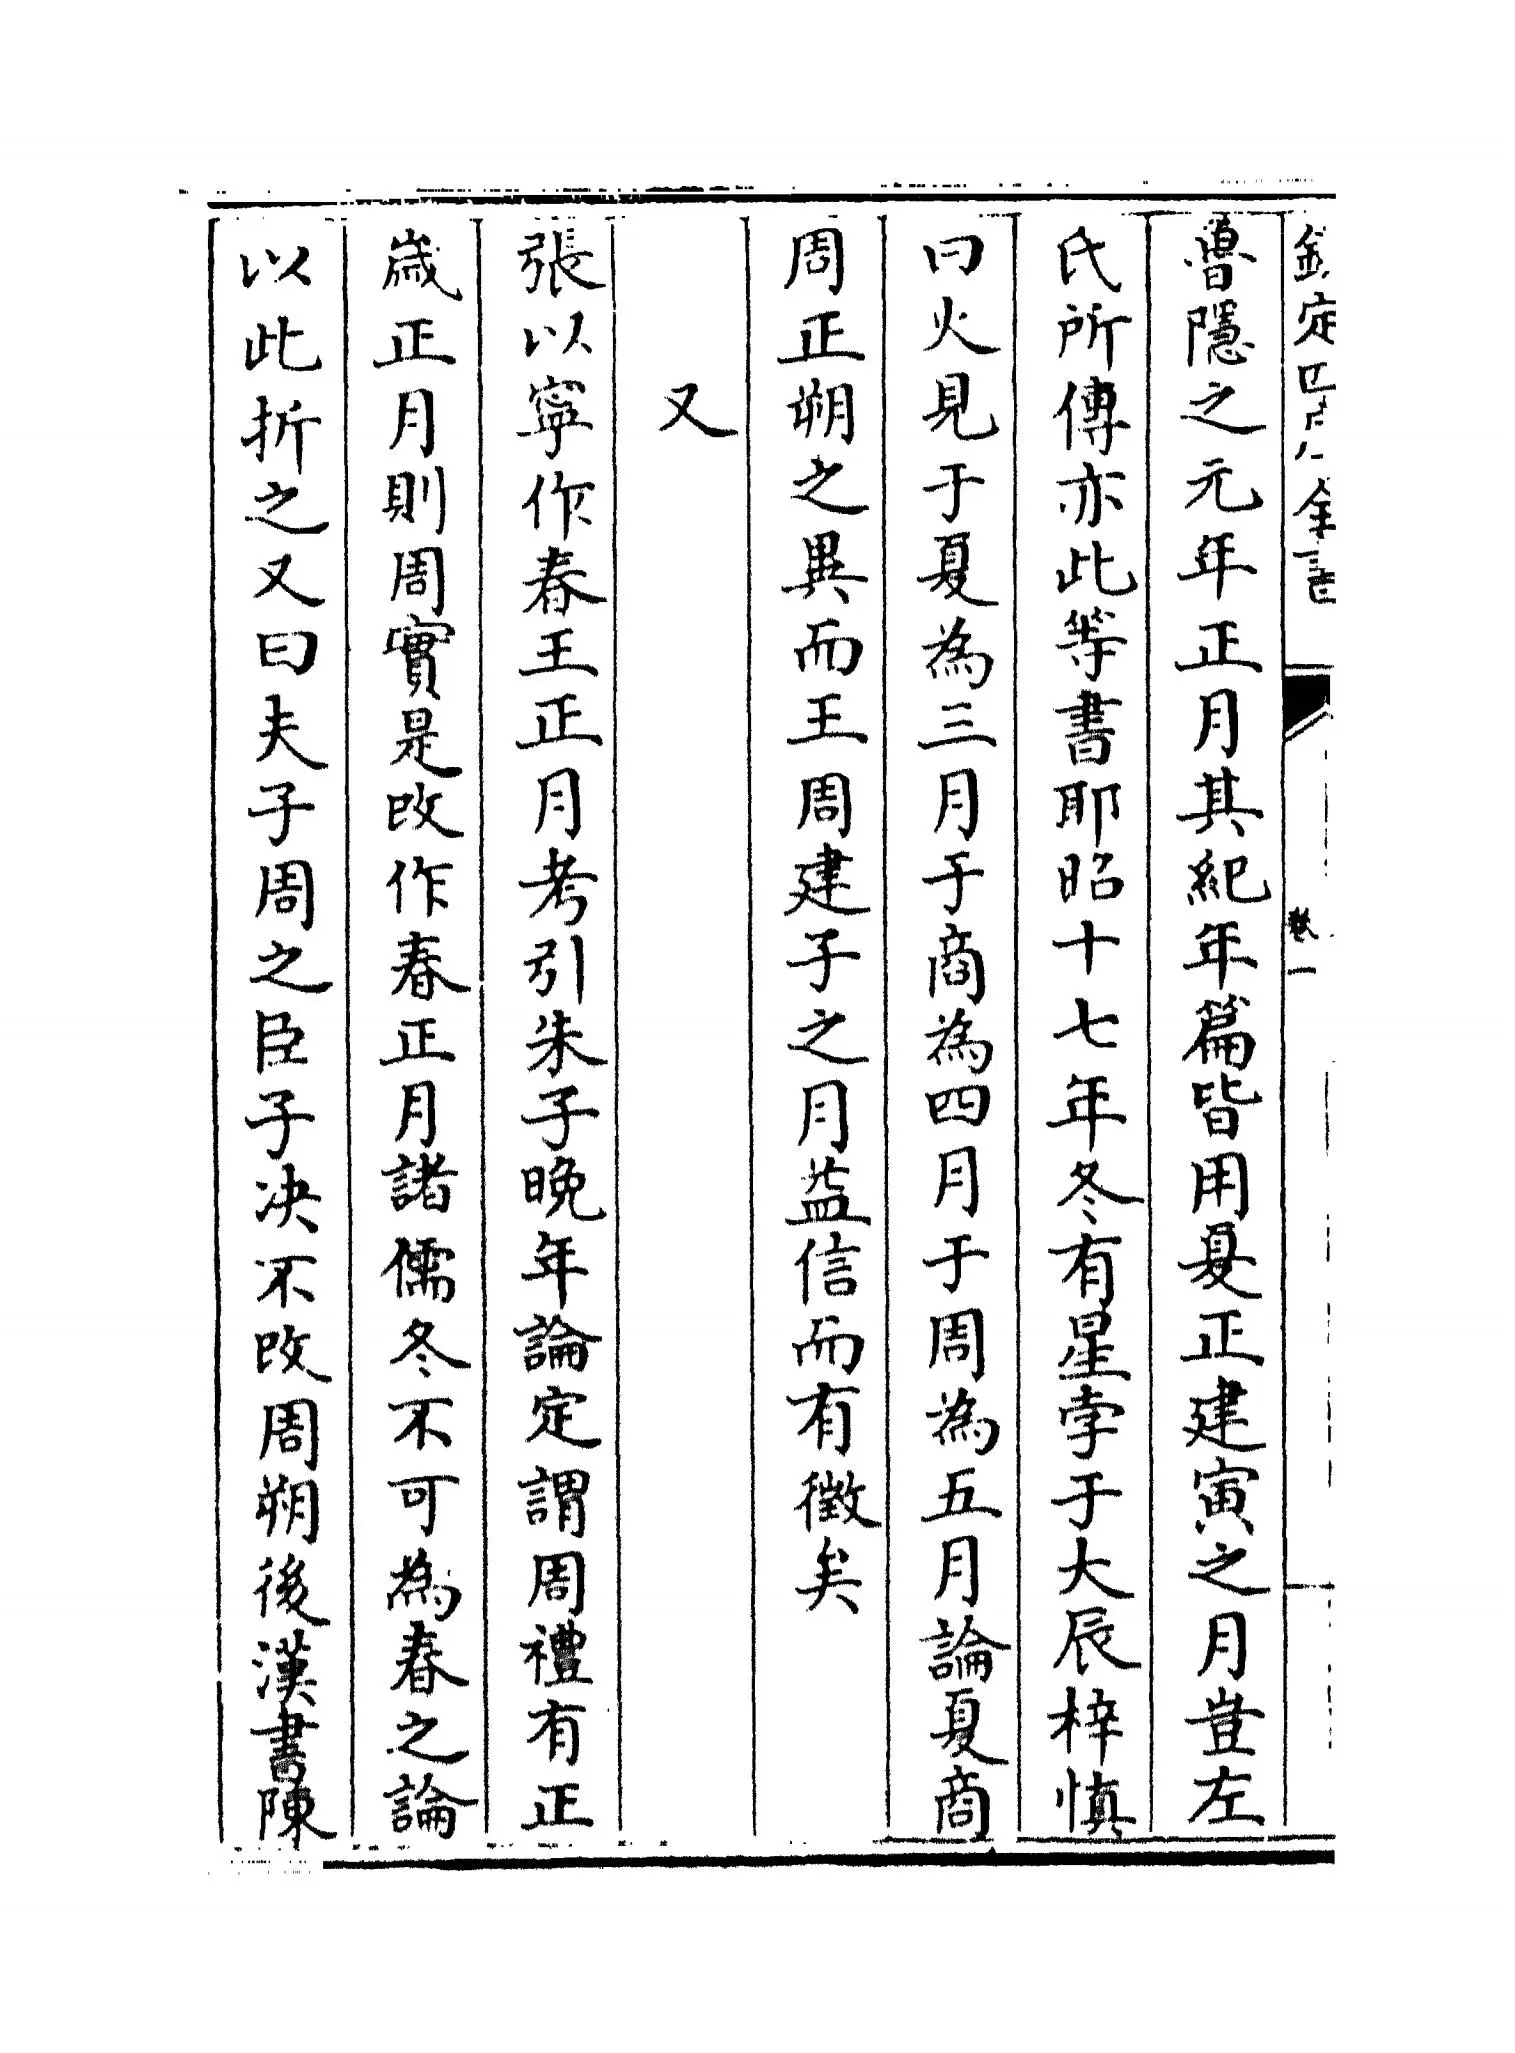 欽定四庫全書
卷一
魯隱之元年正月其紀年篇皆用夏正建寅之月豈左
氏所傳亦此等書耶昭十七年冬有星孛于大辰梓慎
曰火見于夏為三月于商為四月于周為五月論夏商
周正朔之異而王周建子之月益信而有徵矣
又
張以寧作春王正月考引朱子晚年論定謂周禮有正
歲正月則周實是改作春正月諸儒冬不可為春之論
以此折之又曰夫子周之臣子决不改周朔後漢書陳